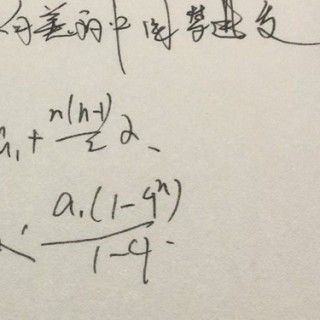 向美丽中国梦进发
a₁ + n(n-1)/2 d、
a₁(1-q^n)/1-q.